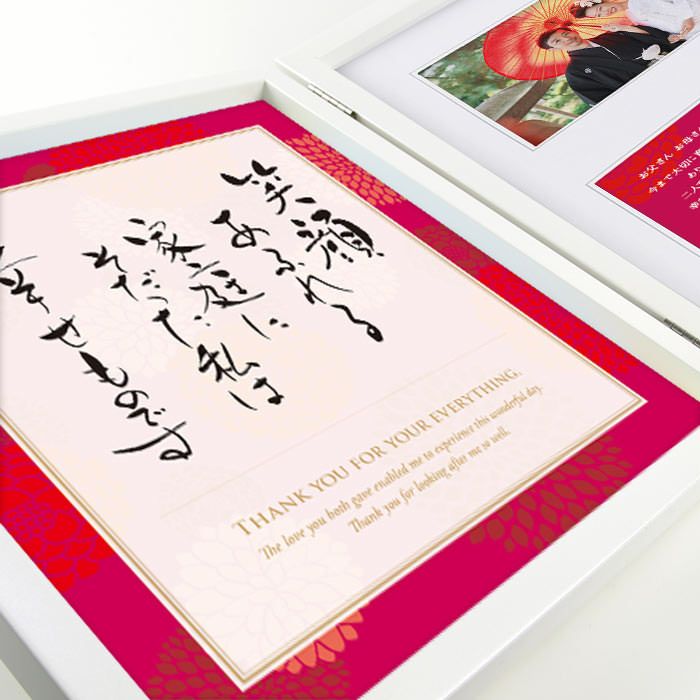 笑顔
あふれる
家庭に
そだった私は
幸せものです
THANK YOU FOR YOUR EVERYTHING.
The love you both gave enabled me to experience this wonderful day.
Thank you for looking after me so well.
お父さん お母さ
今まで大切に
二人